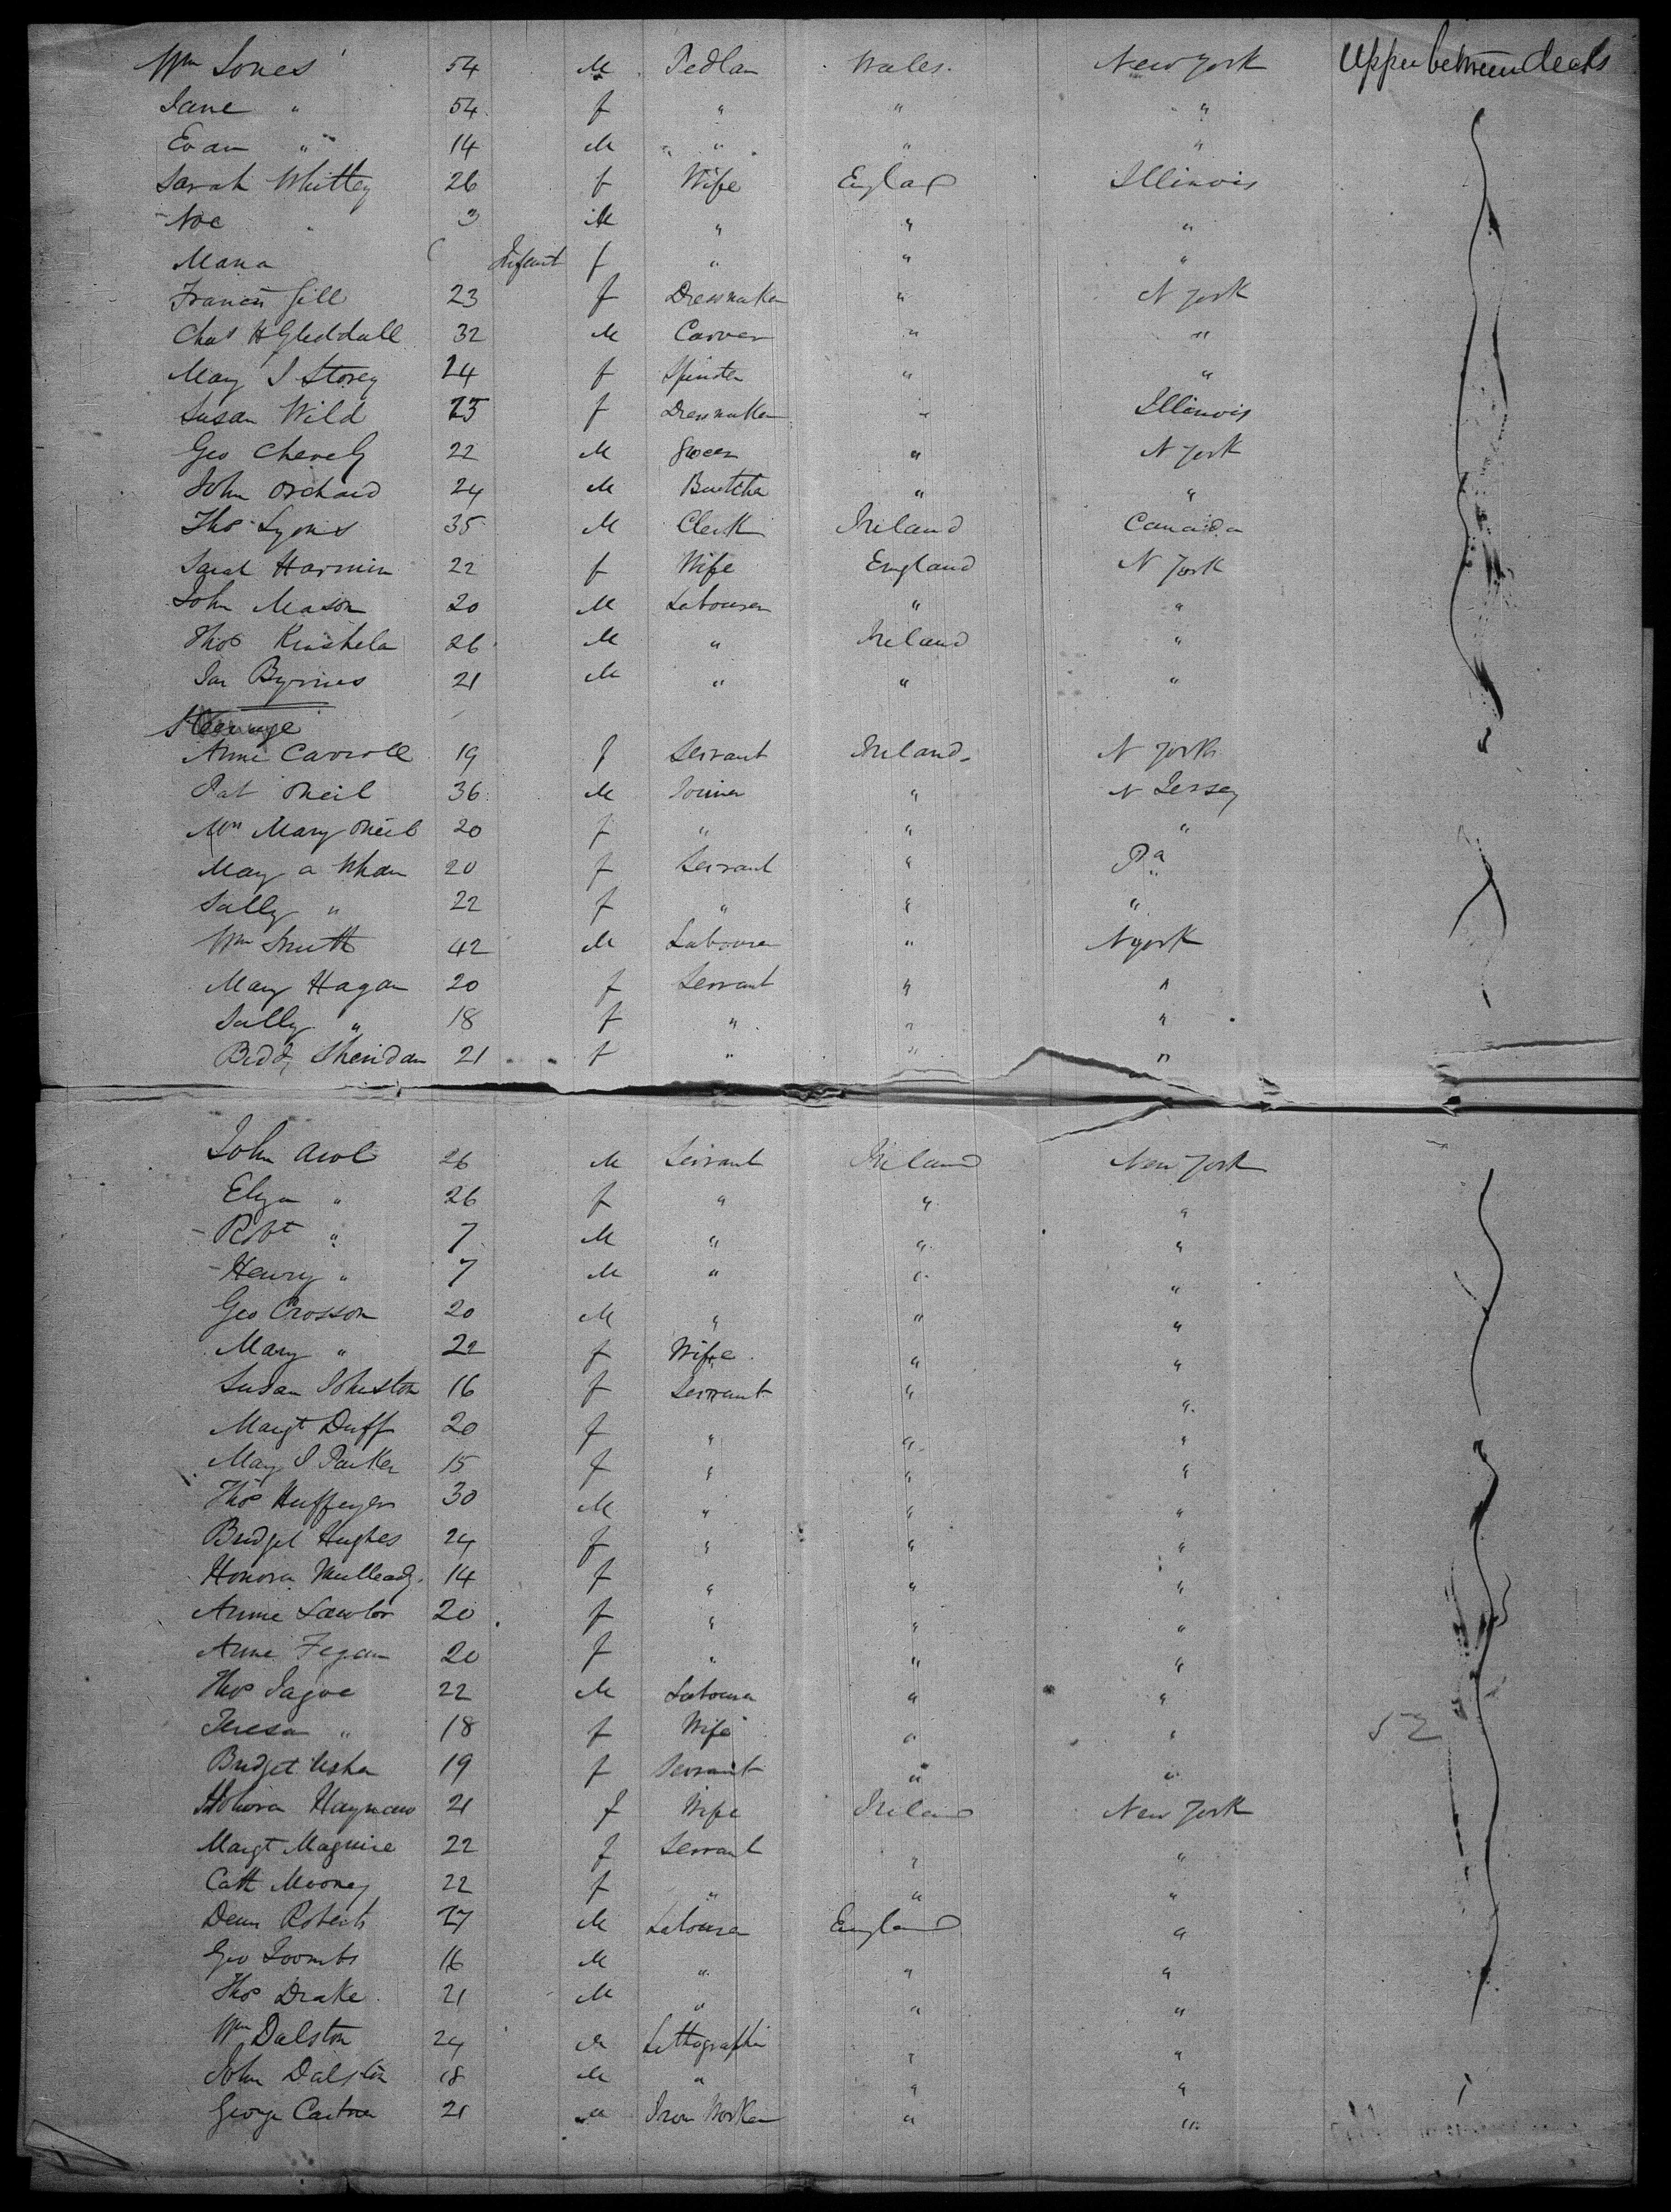 Wm Jones 54 M Pedlar Wales New York Upper between decks
Jane " 54 f " " "
Evan " 14 M " " "
Sarah Whittey 26 f Wife England Illinois
Noe " 3 M " " "
Maria Infant f " " "
Francis Gill 23 f Dressmaker " N York
Chas H Gleddall 32 M Carver " "
Mary J Storey 24 f Spinster " "
Susan Wild 25 f Dressmaker " Illinois
Geo Chevely 22 M Grocer " N York
John Orchard 24 M Butcher " "
Thos Lyons 35 M Clerk Ireland Canada
Sarah Harmin 22 f Wife England N York
John Mason 20 M Labourer " "
Thos Kinshela 26 M " Ireland "
Jas Byrnes 21 M " " "
Steerage
Anne Carroll 19 f Servant Ireland N York
Pat Oneil 36 M Joiner " N Jersey
Mrs Mary Oneil 20 f " " "
Mary a Whan 20 f Servant " Pa
Sally " 22 f " " "
Wm Smith 42 M Labourer " N York
Mary Hagan 20 f Servant " "
Sally " 18 f " " "
Bidd Sheridan 21 f " " "
John 26 M Servant Ireland New York
Eliza " 26 f " " "
Robt " 7 M " " "
Henry " 7 M " " "
Geo Crosson 20 M " " "
Mary " 22 f Wife " "
Susan Johnston 16 f Servant " "
Margt Duff 20 f " " "
Mary J Parker 15 f " " "
Thos 30 M " " "
Bridget Hughes 24 f " " "
Honora Mulleady 14 f " " "
Annie Lawlor 20 f " " "
Anne Fegan 20 f " " "
Thos Jagoe 22 M Labourer " "
Teresa " 18 f Wife " " 52
Bridget Usher 19 f Servant " "
Honora 21 f Wife Ireland New York
Margt Maguire 22 f Servant " "
Cath Mooney 22 f " " "
Denis Roberts 27 M Labourer England "
Geo Toombs 16 M " " "
Thos Drake 21 M " " "
Wm Dalston 24 M Lithographer " "
John Dalston 18 M " " "
George Carter 21 M Iron Worker " "